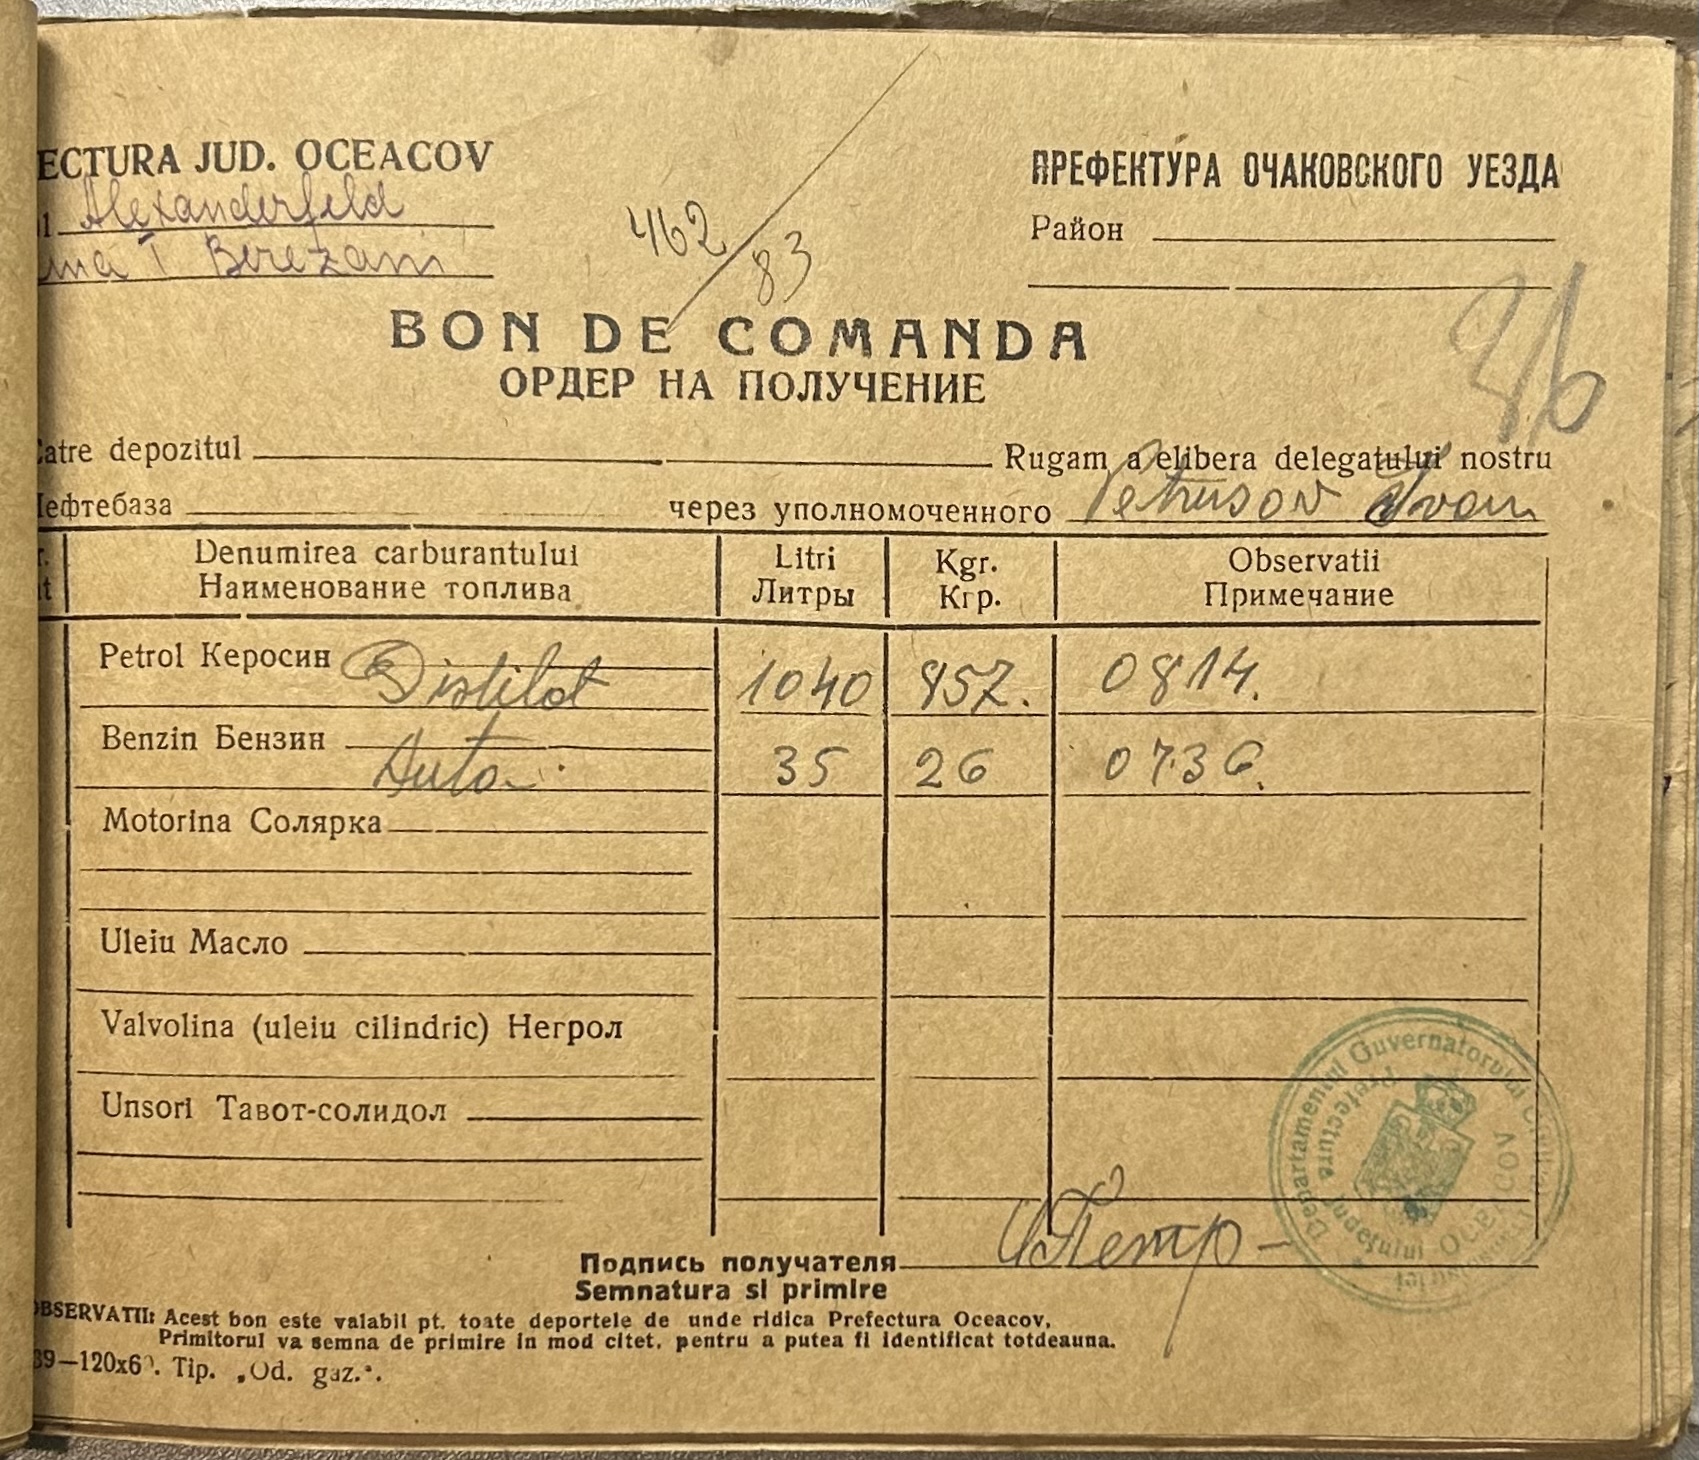 ECTURA JUD. OCEACOV
ПРЕФЕКТУРА ОЧАКОВСКОГО УЕЗДА
l Alexanderfeld
Район
I Berezani
462/83
36
BON DE COMANDA
ОРДЕР НА ПОЛУЧЕНИЕ
Catre depozitul Rugam a elibera delegatului nostru
Нефтебаза через уполномоченного Petrusov Ivan
Denumirea carburantului Litri Kgr. Observatii
Наименование топлива Литры Кгр. Примечание
Petrol Керосин Distilat 1040 857. 0814.
Benzin Бензин Auto 35 26 0736.
Motorina Солярка
Uleiu Масло
Valvolina (uleiu cilindric) Негрол
Unsori Тавот-солидол
Departamentul Guvernatorului Civil
Prefectura Judeţului Oceacov
Подпись получателя Петр
Semnatura si primire
OBSERVATII: Acest bon este valabil pt. toate deportele de unde ridica Prefectura Oceacov,
Primitorul va semna de primire in mod citet, pentru a putea fi identificat totdeauna.
39—120x6 . Tip. „Od. gaz.".